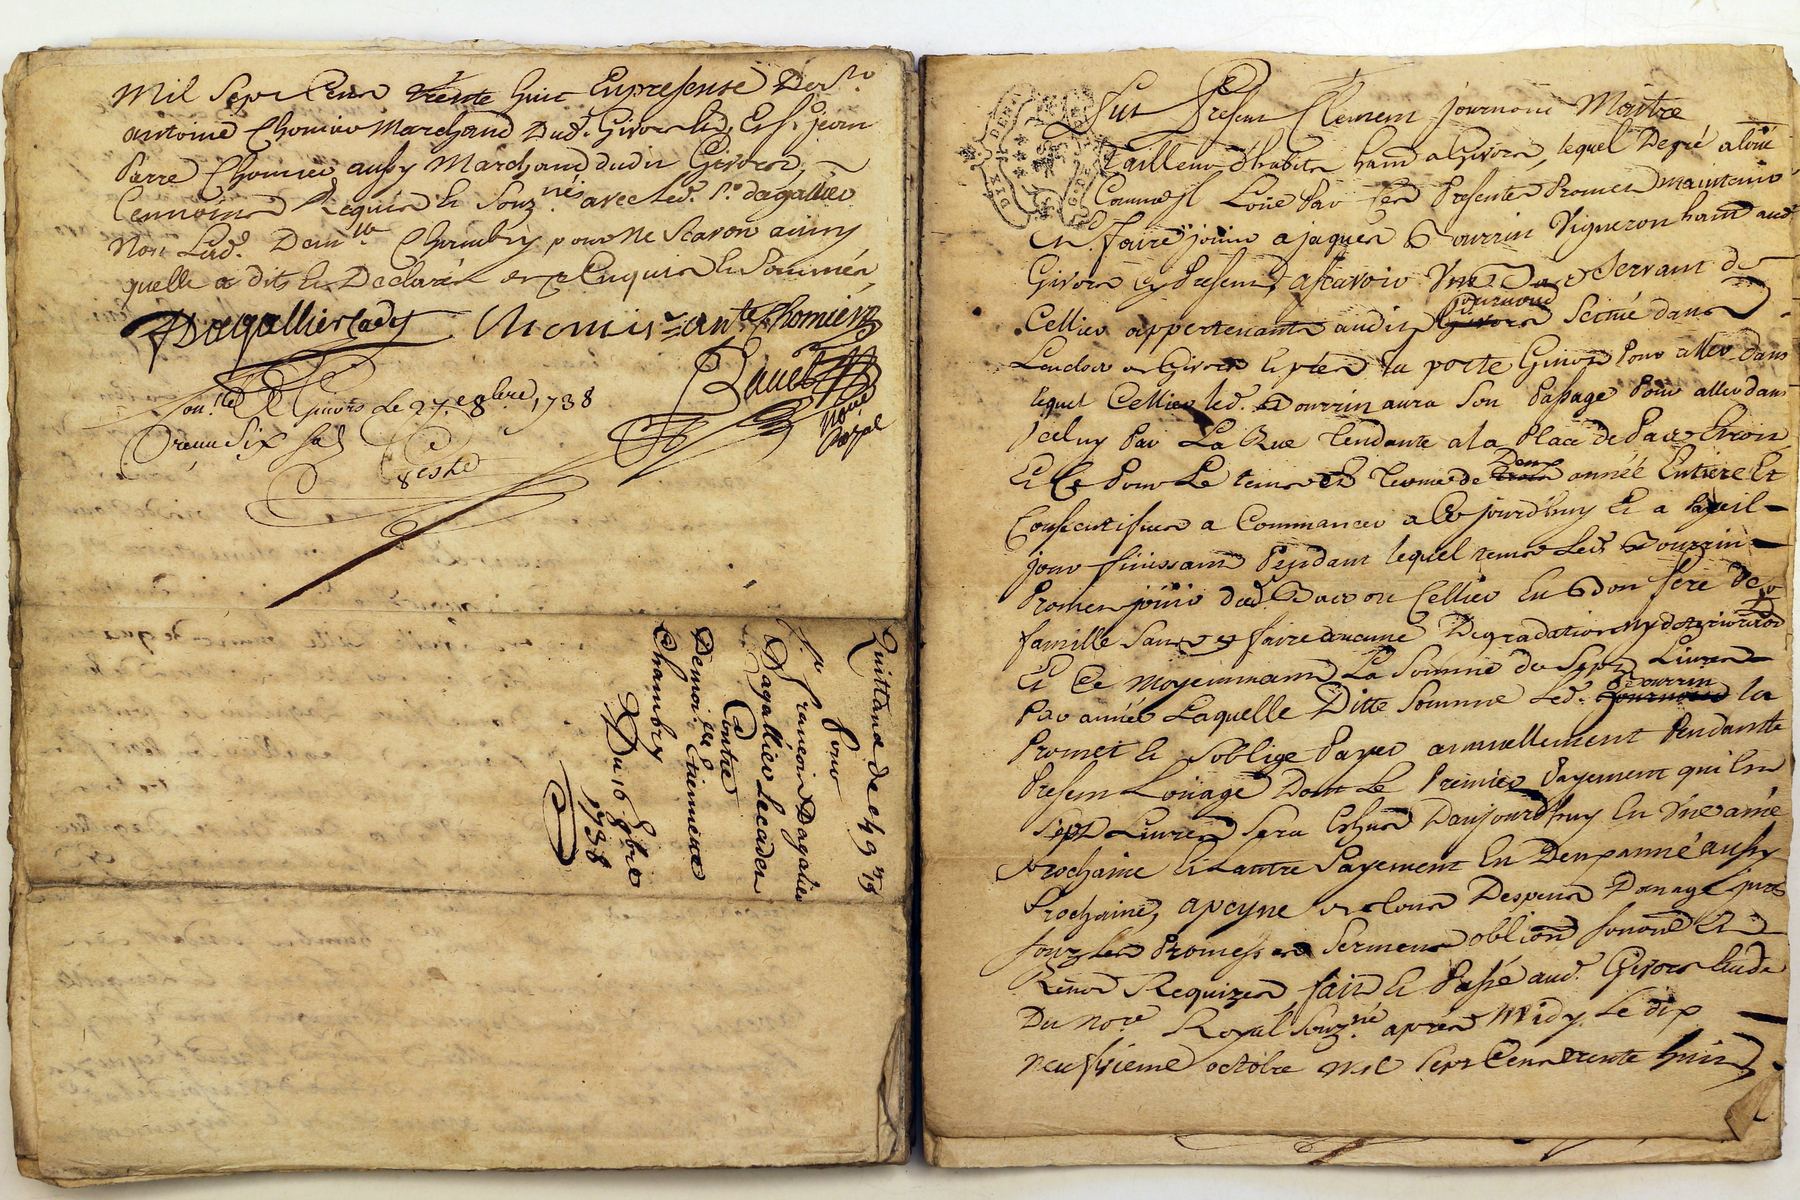 Mil Sept Cens trente huit En presense De Sr.
antoine Chomier Marchand Dud. Givors Et Sr. jean
Pierre Chomier aussy Marchand dudit Givors,
temoins Requis et Souzné. avec led. Sr. dagallier
Non Lad. Demlle Chambry pour ne Scavoir ainsy
quelle a dits Et Declaré de ce Enquise Et Sommée,
Dagallier cadet Chomier ante. Chomier
Bauet
Nore
Royal
Con.lé A Givors Le 27. 8bre 1738
recu Six sols
Quittance de
Pour
Sr. francois Dagalier
Dagallier Le cadet
Contre
Demoi.elle Etiennette
Chambry
Du 16 8bre
1738
Fut Present Clement journoud Maitre
Tailleur d'habits habt a Givors, lequel De gré a loüé
Comme Il Loüe Par Ses Presentes Promet maintenir
Et faire joüir a jaques Bourrin Vigneron habt aud.
Givors Cy Present, ascavoir Une Servant de
Cellier appertenants audit journoud Scitué dans
Lenclos de Givors Et pres la porte Pour aller dans
lequel Cellier led. Bourrin aura Son Passage Pour aller dans
Iceluy Par La Rue Tendante a la Place de
Et Ce Pour Le tems Et Terme de Deux année Entiere Et
Consecutifues a Commancer a Ce jourd'huy Et a Pareil
jour finissant Pendant lequel tems Led. Bourrin
Promet joüir dud. ou Cellier En Bon Pere De
famille Sans y faire aucune Degradation ny deteriora͠on
Et Ce moyennant La Somme de Sept Livres
Par année Laquelle Ditte Somme Led. Bourrin la
Promet Et Soblige Payer annuellement Pendant le
Present Loüage Dont Le Premier Payement qui Est
Sept Livres Sera Eshus Daujourdhuy En Une année
Prochaine Et Lautre Payement En Deux année aussy
Prochaine, a peyne de tous Despens Domages
Souz Les Promesses Serment
Requizes fait Et Passé aud. Givors Etude
Du Nore. Royal Souzné. apres Midy Le dix
neufvieme octobre mil Sept Cens trente huit